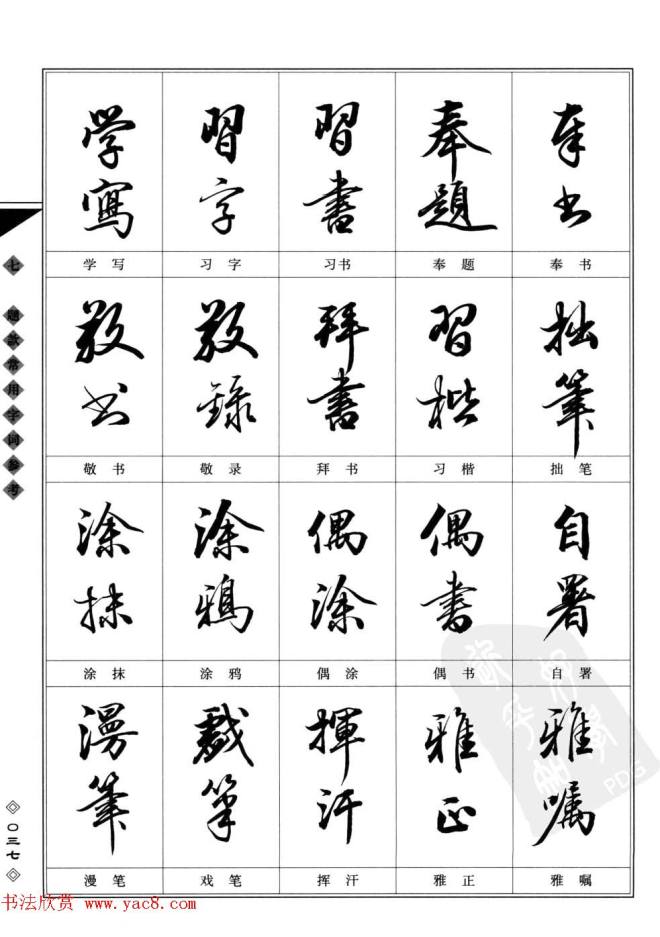 七 题款常用字词参考
学寫 習字 習書 奉題 奉书
学写 习字 习书 奉题 奉书
敬书 敬録 拜書 習楷 拙筆
敬书 敬录 拜书 习楷 拙笔
涂抹 涂鴉 偶涂 偶書 自署
涂抹 涂鸦 偶涂 偶书 自署
漫筆 戲筆 揮汗 雅正 雅嘱
漫笔 戏笔 挥汗 雅正 雅嘱
PDG
〇三七
书法欣赏 www.yac8.com